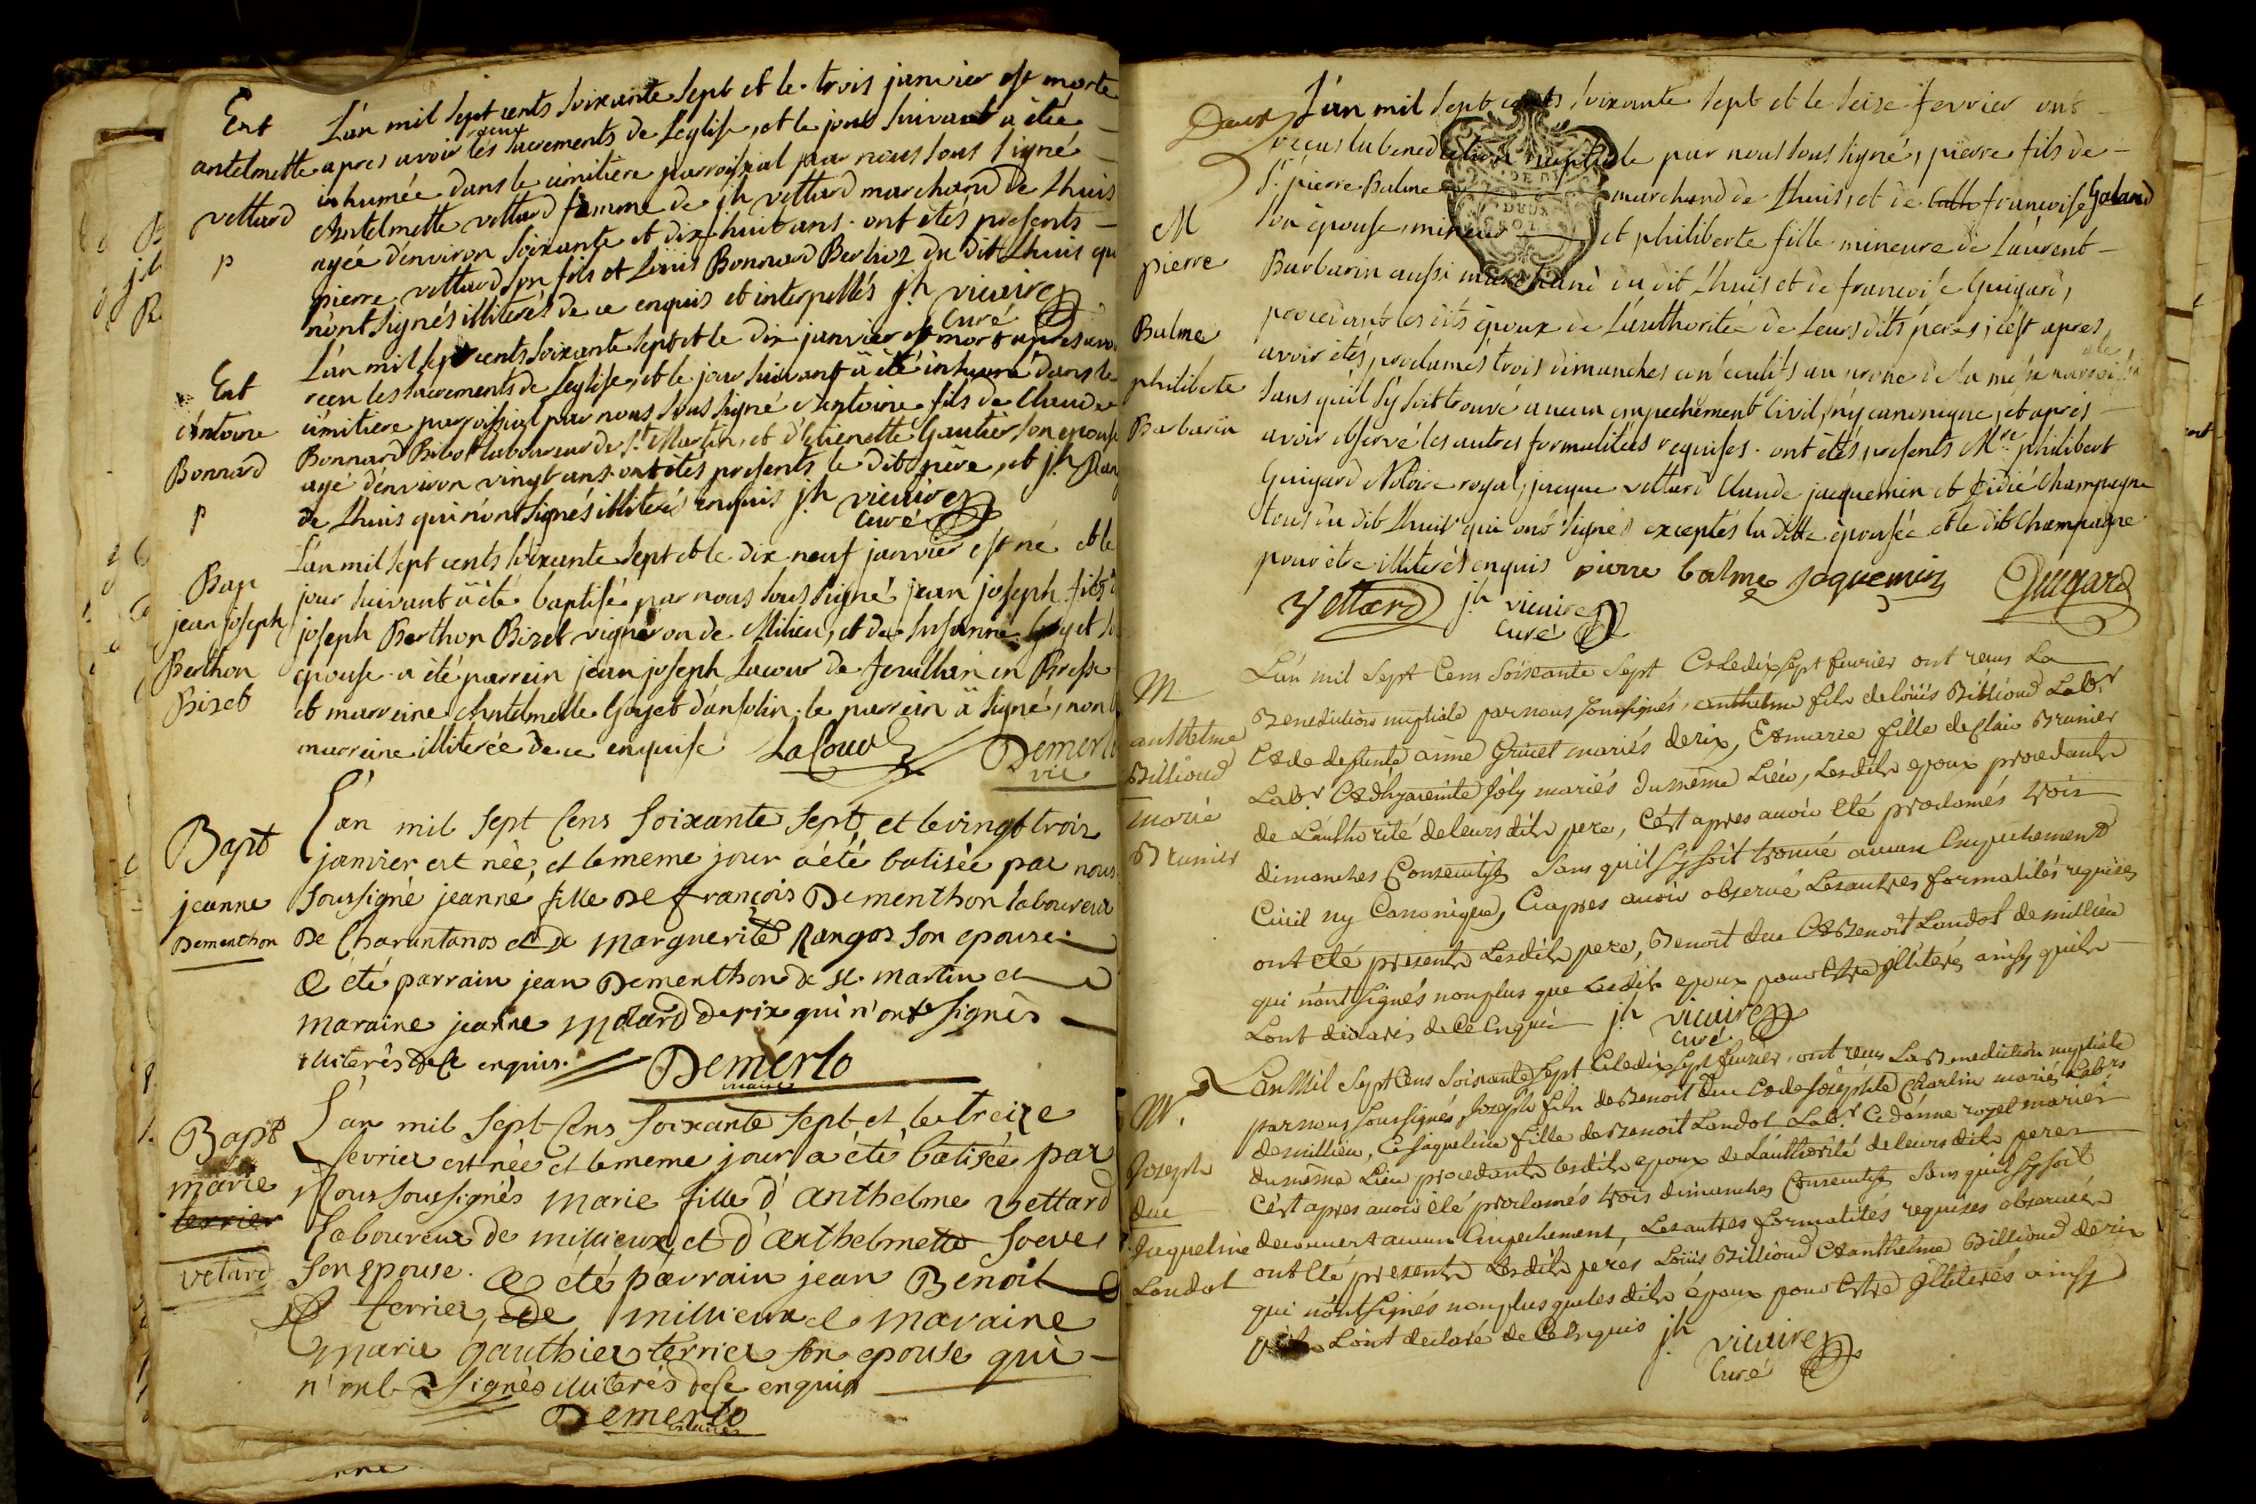 Ent
antelmette
vettard
p
L'an mil sept cents soixante sept et le trois janvier est morte
apres avoir reçeus les sacrements de L'eglise, et le jour suivant a étée
inhumée dans le cimitiere parroissial par nous sous signé
Antelmette vettard famme de jh vettard marchand de Lhuis
agée d'environ soixante et dix huit ans. ont étés presents
pierre vettard son fils et Louis Bonnard Berlioz du dit Lhuis qui
n'ont signés illiterés de ce enquis et interpellés jh vicaire
Curé
Ent
Antoine
Bonnard
p
L'an mil sept cents soixante sept et le dix janvier est mort apres avoir
reçu les sacrements de L'eglise, et le jour suivant a été inhumé dans le
cimitiere parroissial par nous sous signé Antoine fils de Claude
Bonnard Bibot laboureur de St Martin, et d'Etienette Gautier son epouse
agé d'environ vingt ans. ont étés presents le dit père, et jh
de Lhuis qui n'ont signés illiterés enquis jh vicaire
Curé
Bap
jean joseph
Berthon
Bizet
L'an mil sept cents soixante sept et le dix neuf janvier est né et le
jour suivant a été baptisé par nous sous signé jean joseph fils de
joseph Berthon Bizet vigneron de Milieu, et de Susanne Goyet son
epouse a été parrein jean joseph Lacour de en Bresse
et marreine Antelmette Goyet d'ansolin. le parrein a signé, non la
marreine illiterée de ce enquise LaCour Demerlo
vic
Bapt
jeanne
Dementhon
L'an mil sept Cens soixante sept et le vingt trois
janvier est née, et le meme jour a été batisée par nous
soussigné jeanne fille De françois Dementhon laboureur
De Charantonos et De marguerite Rangos son epouse.
a été parrain jean Dementhon de st. martin et
maraine jeanne Molard de rix qui n'ont signés
illiterés de ce enquis. Demerlo
vicaire
Bapt
marie
terrier
vetard
L'an mil sept Cens soixante sept et le treize
fevrier est née et le meme jour a été batisée par
Nous soussignés marie fille d'anthelme vettard
laboureur de milieux, et d'anthelmette
son epouse. a été parrain jean Benoit
terrier de milieux et maraine
marie gauthier terrier son epouse qui
n'ont signés illiterés de ce enquis
Demerlo
vicaire
Deux
M
pierre
Balme
philiberte
Barbarin
L'an mil sept cents soixante sept et le seize fevrier ont
reçus la benediction nuptiale par nous sous signé, pierre fils de
Sr. pierre Balme marchand de Lhuis, et de Cath françoise Galand
son épouse, mineur et philiberte fille mineure de Laurent
Barbarin aussi marchand du dit Lhuis et de françoise Guigard,
procedant les dits époux de L'authoritée de Leurs dits peres; c'est apres
avoir étés proclamés trois dimanches consecutifs au prone de la messe parroissiale
sans qu'il s'y soit trouvé aucun empechement civil, ny canonique, et aprés
avoir observé les autres formalitées requises. ont étés presents Mre philibert
Guigard Notaire royal, jacque vettard Claude jacquemin et Didié Champagne
tous du dit Lhuis qui ont signés exceptés la ditte épousée et le dit Champagne
pour être illiterés enquis pierre balme Jaquemin Guigard
Vettard jh vicaire
Curé
M.
anthelme
Billioud
marie
Brunier
L'an mil Sept Cens Soixante Sept Et Le dix sept fevrier ont reçus La
Benediction nuptiale par nous soussignés, anthelme fils de Loüis Billioud Labr.
Et de defunte anne Grivet mariés de rix, Et marie fille de Brunier
Labr. Et d'hyacinte Joly mariés du même Lieu, Lesdits epoux procedants
de L'authorité de leurs dits pere, C'est apres avoir Eté proclamés trois
dimanches Consecutifs Sans qu'il s'y soit trouvé aucun Empechement
Civil ny Canonique, Et apres avoir observé Les autres formalités requises
ont Eté presents Lesdits pere, Benoit duc Et Benoit Landot de millieu
qui n'ont signés non plus que Lesdits epoux pour Estre illiterés ainsy qu'ils
L'ont declarés de Ce Enquis jh vicaire
Curé
M.
Joseph
duc
Jaqueline
Landot
L'an Mil Sept Cens Soixante Sept Et le dix sept fevrier, ont reçus La Benediction nuptiale
par nous soussignés, Joseph fils de Benoit Duc Et de Josephte Charlin mariés Labrs
de millieu, Et Jaqueline fille de Benoit Landot Labr. Et d'anne rozet mariés
du même Lieu procedants lesdits epoux de L'authorité de leurs dits peres
C'est apres avoir été proclamés trois dimanches Consecutifs Sans qu'il s'y soit
decouvert aucun Empechement, Les autres formalités requises observées
ont Eté presents Lesdits peres Loüis Billioud Et anthelme Billioud de rix
qui n'ont signés non plus que les dits époux pour Estre illiterés ainsy
L'ont declaré de Ce Enquis jh vicaire
Curé